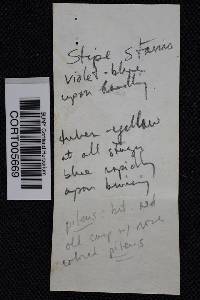 Stipe stains
violet-blue
upon handling.
tubes - yellow
at all stages
blue rapidly
upon bruising
pileus - but red
old comp w/ rose
colored pileus
CORT005669